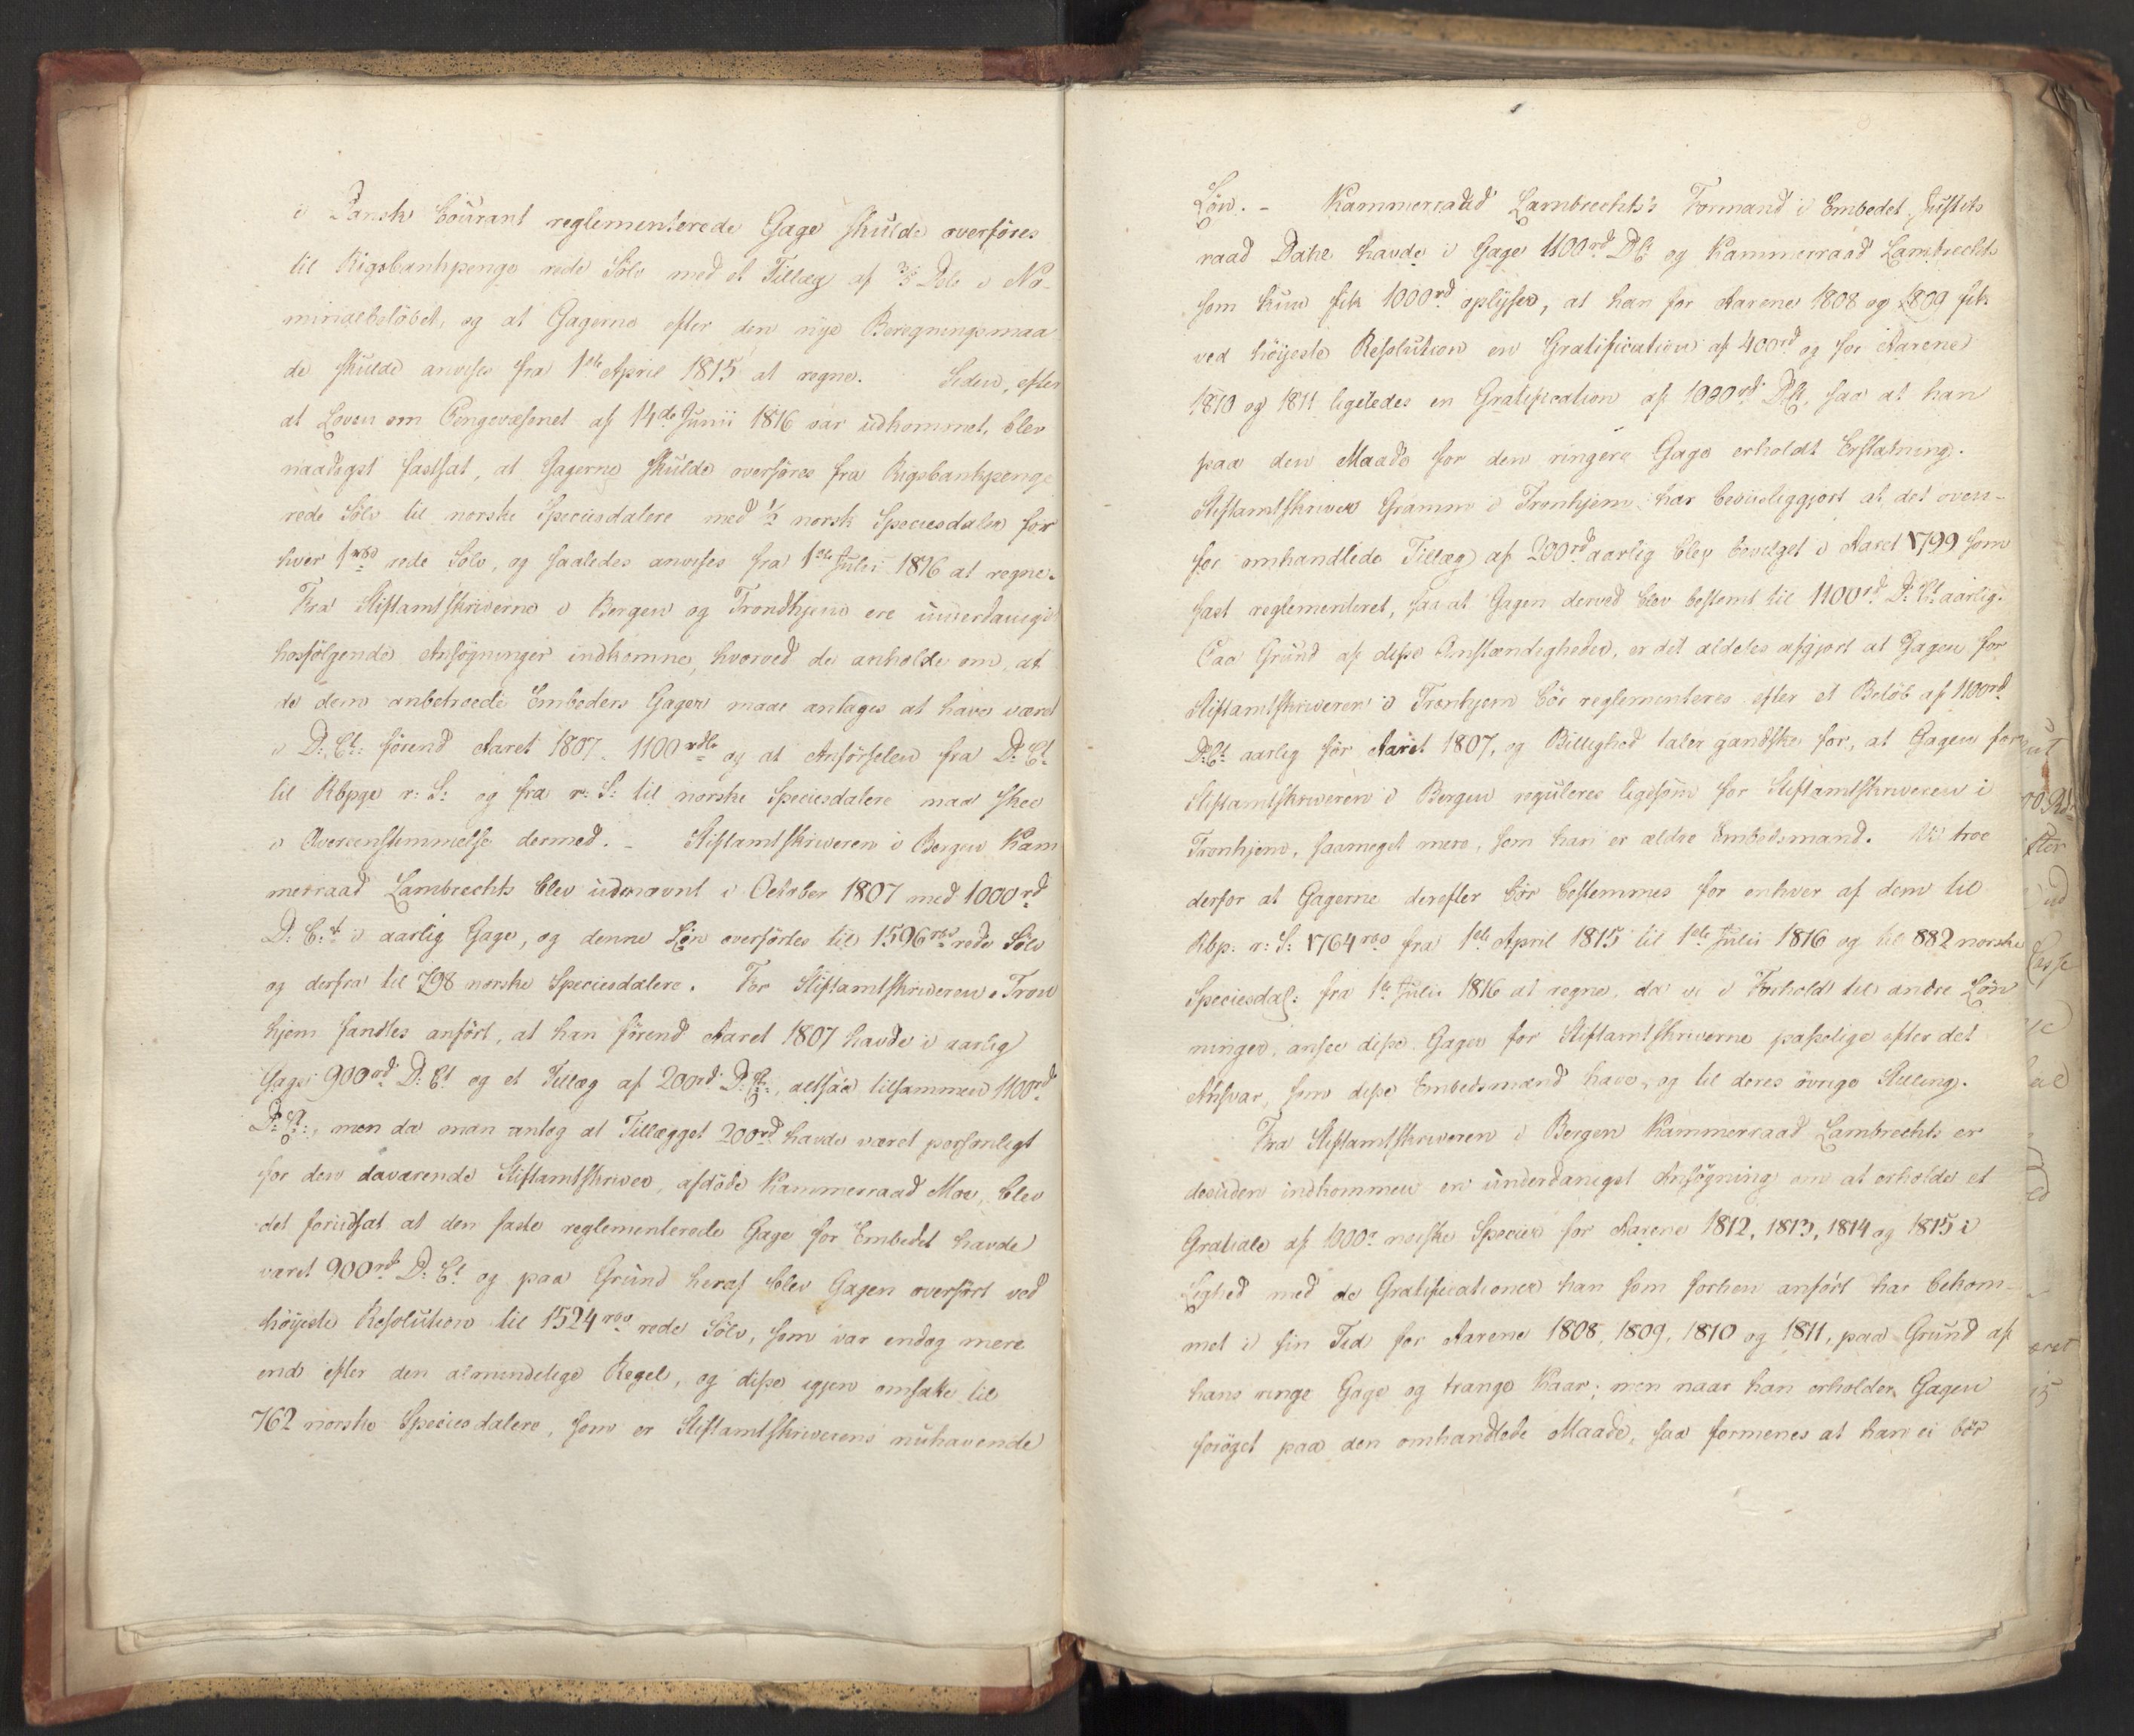 i Dansk Courant reglementerede Gage skulde overföres
til Rigsbankpenge rede Sölv med et Tillæg af 3/5 Dele i No-
minalbelöbet, og at Gagerne efter den nye Beregningsmaa
de skulde anvises fra 1ste April 1815 at regne. Siden, efter
at Loven om Pengevæsenet af 14de Junii 1816 var udkommet, blev
naadigst fastsat, at Gagerne skulde overföres fra Rigsbankpenge
rede Sölv til norske Speciesdalere med 1/2 norsk Speciesdaler for
hver 1 rbd rede Sölv, og saaledes anvises fra 1ste Julii 1816 at regne.
Fra Stiftamtskriverne i Bergen og Trondhjem ere underdanigst
hosfölgende Ansögninger indkomne, hvorved de anholde om, at
de dem anbetroede Embeders Gager maae antages at have været
i D: Ct: förend Aaret 1807. 1100 rdlr og at Anförselen fra D: Ct
til Rbpge r: S: og fra r: S: til norske Speciesdalere maa skee
i Overeenstemmelse dermed. - Stiftamtskriveren i Bergen Kam
merraad Lambrechts blev udnævnt i October 1807 med 1000 rd
D: C:t i aarlig Gage, og denne Lön overförtes til 1596 rbd rede Sölv
og derfra til 798 norske Speciesdalere. For Stiftamtskriveren i Tron
hjem fandtes anfört, at han förend Aaret 1807 havde i aarlig
Gage 900 rd D: Ct og et Tillæg af 200 rd D: Ct:, altsaa tilsammen 1100 rd
D: Ct:, men da man antog at Tillægget 200 rd havde været personligt
for den daværende Stiftamtskriver, afdöde Kammerraad Moe, blev
det forudsat at den faste reglementerede Gage for Embedet havde
været 900 rd D: Ct og paa Grund heraf blev Gagen overfört ved
höieste Resolution til 1524 rbd rede Sölv, som var endog mere
end efter den almindelige Regel, og disse igjen omsatte til
762 norske Speciesdalere, som er Stiftamtskriverens nuhavende
Lön. - Kammerraad Lambrechts's Formand i Embedet, Justits
raad Dahl havde i Gage 1100 rd D Ct og Kammerraad Lambrechts
som kun fik 1000 rd oplyser, at han for Aarene 1808 og 1809 fik
ved höieste Resolution en Gratification af 400 rd og for Aarene
1810 og 1811 ligeledes en Gratification af 1000 rd D Ct, saa at han
paa den Maade for den ringere Gage erholdt Erstatning.
Stiftamtskriver Gramm i Tronhjem har beviisliggjort at det oven-
for omhandlede Tillæg af 200 rd aarlig blev bevilget i Aaret 1799 som
fast reglementeret, saa at Gagen derved blev bestemt til 1100 rd D: Ct. aarlig.
Paa Grund af disse Omstændigheder, er det aldeles afgjort at Gagen for
Stiftamtskriveren i Tronhjem bör reglementeres efter et Belöb af 1100 rd
D: Ct. aarlig för Aaret 1807, og Billighed taler gandske for, at Gagen for
Stiftamtskriveren i Bergen reguleres ligesom for Stiftamtskriveren i
Tronhjem, saameget mere, som han er ældre Embedsmand. Vi troe
derfor at Gagerne derefter bör bestemmes for enhver af dem til
Rbp. r: S: 1764 rbd fra 1ste April 1815 til 1ste Julii 1816 og til 882 norske
Speciesdal: fra 1ste Julii 1816 at regne, da vi i Forhold til andre Lön
ninger, ansee disse Gager for Stiftamtskriverne passelige efter det
Ansvar, som disse Embedsmænd have, og til deres övrige Stilling.
Fra Stiftamtskriveren i Bergen Kammerraad Lambrechts er
desuden indkommen en underdanigst Ansögning om at erholde et
Gratiale af 1000 norske Species for Aarene 1812, 1813, 1814 og 1815 i
Lighed med de Gratificationer han som forhen anfört har bekom-
met i sin Tid for Aarene 1808, 1809, 1810 og 1811, paa Grund af
hans ringe Gage og trange Kaar; men naar han erholder Gagen
foröget paa den omhandlede Maade, saa formenes at han ei bör